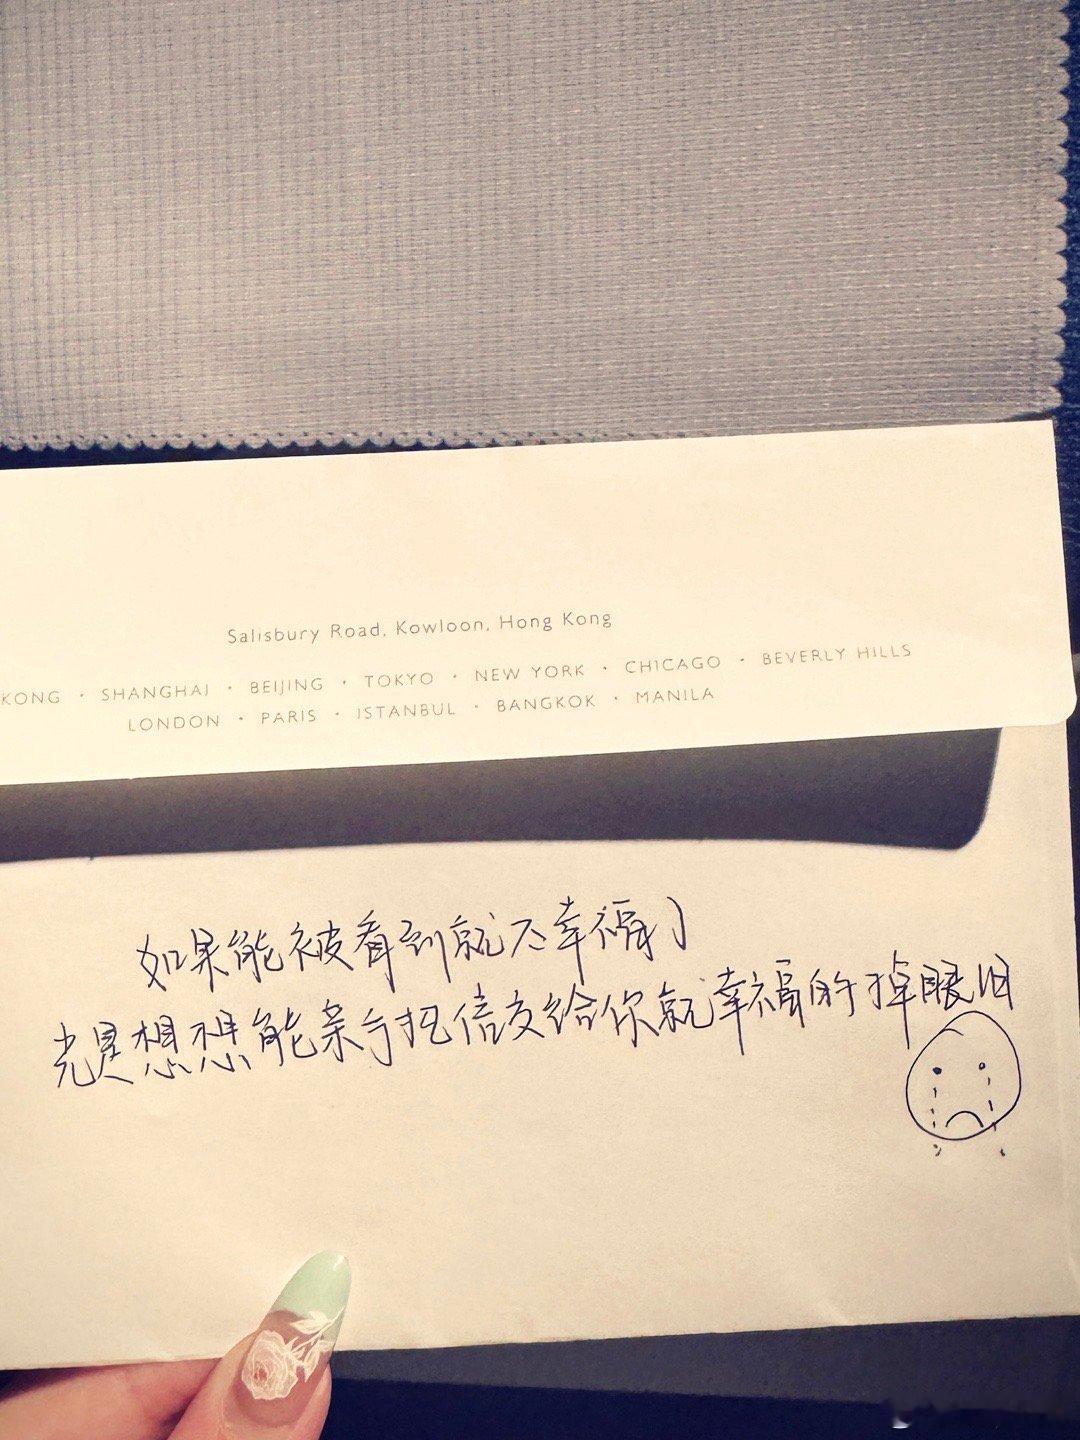 Salisbury Road, Kowloon, Hong Kong
KONG · SHANGHAI · BEIJING · TOKYO · NEW YORK · CHICAGO · BEVERLY HILLS
LONDON · PARIS · ISTANBUL · BANGKOK · MANILA
如果能被看到就太幸福了
光是想想能亲手把信交给你就幸福的掉眼泪